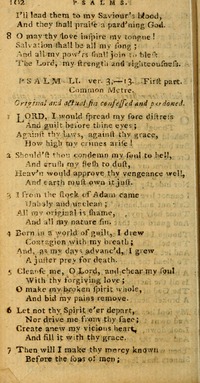 102 PSALMS.
I'll lead them to my Saviour's blood,
And they shall praise a pard'ning God.
8 O may thy love inspire my tongue!
Salvation shall be all my song;
And all my pow'rs shall join to bless
The Lord, my strength and righteousness.
PSALM LI. ver. 3,—13. First part.
Common Metre.
Original and actual sin confessed and pardoned.
1 LORD, I would spread my sore distress
And guilt before thine eyes;
Against thy laws, against thy grace,
How high my crimes arise!
2 Should'st thou condemn my soul to hell,
And crush my flesh to dust,
Heav'n would approve thy vengeance well,
And earth must own it just.
3 I from the stock of Adam came
Unholy and unclean;
All my original is shame,
And all my nature sin.
4 Born in a world of guilt, I drew
Contagion with my breath;
And, as my days advanc'd, I grew
A juster prey for death.
5 Cleanse me, O Lord, and chear my soul
With thy forgiving love;
O make my broken spirit whole,
And bid my pains remove.
6 Let not thy Spirit e'er depart,
Nor drive me from thy face;
Create anew my vicious heart,
And fill it with thy grace.
7 Then will I make thy mercy known
Before the sons of men;